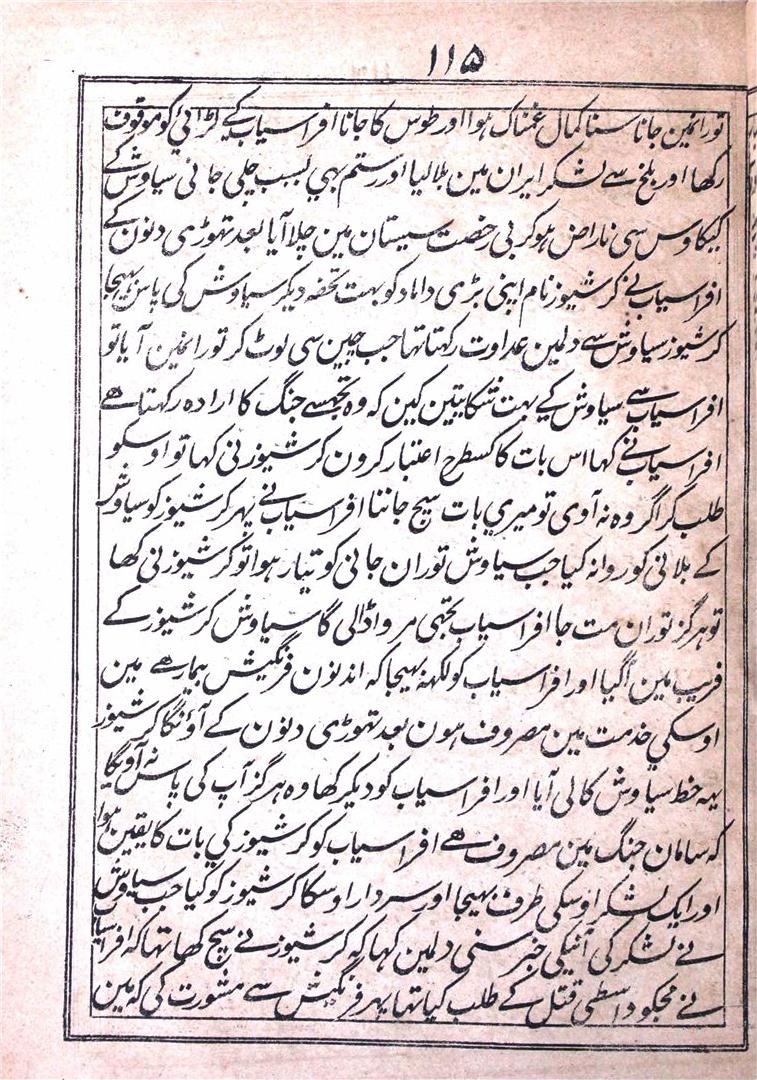 ۱۱۵
تورانمین جانا سنا کمال غمناک ہوا اور طوس کا جانا افراسیاب کے لڑائی کو موقوف
رکھا اور بلخ سے لشکر ایران مین بلا لیا اور رستم بہی بسبب چلی جانی سیاوش کے
کیکاوس سی ناراض ہوکر بی رخصت سیستان مین چلا آیا بعد تہوڑی دنون کے
افراسیاب نے کرشیوز نام اپنی بڑی داماد کو بہت تحفہ دیکر سیاوش کی پاس بہیجا
کرشیوز سیاوش سے دلمین عداوت رکہتا تہا جب چین سی لوٹ کر تورانمین آیا تو
افراسیاب سے سیاوش کے بہت شکایتین کین کہ وہ تجہسے جنگ کا ارادہ رکہتا ھے
افراسیاب نے کہا اس بات کا کسطرح اعتبار کرون کرشیوز نی کہا تو اوسکو
طلب کر اگر وہ نہ آوی تو میری بات سچ جاننا افراسیاب نے پہر کرشیوز کو سیاوش
کے بلانی کو روانہ کیا جب سیاوش توران جانی کو تیار ہوا تو کرشیوز نی کہا
تو ہرگز توران مت جا افراسیاب تجہی مرواڈالی گا سیاوش کرشیوز کے
فریب مین آگیا اور افراسیاب کو لکہہ بہیجا کہ اندنون فرنگیش بیمار ھے مین
اوسکی خدمت مین مصروف ہون بعد تہوڑی دنون کے آؤنگا کرشیوز
یہہ خط سیاوش کا لی آیا اور افراسیاب کو دیکر کہا وہ ہرگز آپ کی پاس نہ آویگا
کہ سامان جنگ مین مصروف ھے افراسیاب کو کرشیوز کی بات کا یقین ہوا
اور ایک لشکر اوسکی طرف بہیجا اور سردار اوسکا کرشیوز کو کیا جب سیاوش
نے لشکر کی آنیکی خبر سنی دلمین کہا کہ کرشیوز نے سچ کہا تہا کہ افراسیاب
نے مجکو واسطی قتل کے طلب کیا تہا پہر فرنگیش سے مشورت کی کہ مین